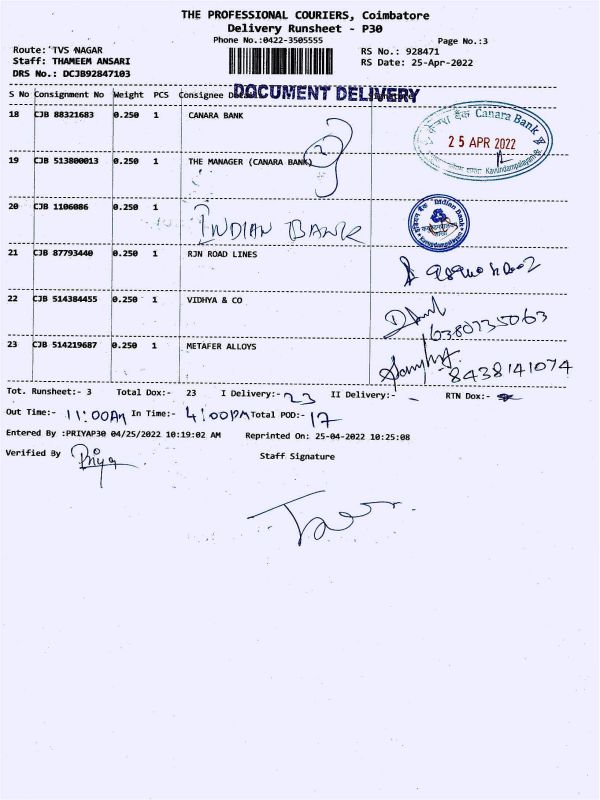 THE PROFESSIONAL COURIERS, Coimbatore
Delivery Runsheet - P30
Phone No.:0422-3505555
Page No.:3
Route: TVS NAGAR
RS No.: 928471
Staff: THAMEEM ANSARI
RS Date: 25-Apr-2022
DRS No.: DCJB92847103
DOCUMENT DELIVERY
S No Consignment No Weight PCS Consignee
18 CJB 88321683 0.250 1 CANARA BANK
केनरा बैंक Canara Bank
25 APR 2022
Kavundampalayam
19 CJB 513800013 0.250 1 THE MANAGER (CANARA BANK)
20 CJB 1106086 0.250 1 INDIAN BANK
Indian Bank
Kavundampalayam
21 CJB 87793440 0.250 1 RJN ROAD LINES
22 CJB 514384455 0.250 1 VIDHYA & CO
6380735063
23 CJB 514219687 0.250 1 METAFER ALLOYS
8438141074
Tot. Runsheet:- 3 Total Dox:- 23 I Delivery:- 23 II Delivery:- - RTN Dox:-
Out Time:- 11:00AM In Time:- 4:00PM Total POD:- 17
Entered By :PRIYAP30 04/25/2022 10:19:02 AM Reprinted On: 25-04-2022 10:25:08
Verified By Priya
Staff Signature